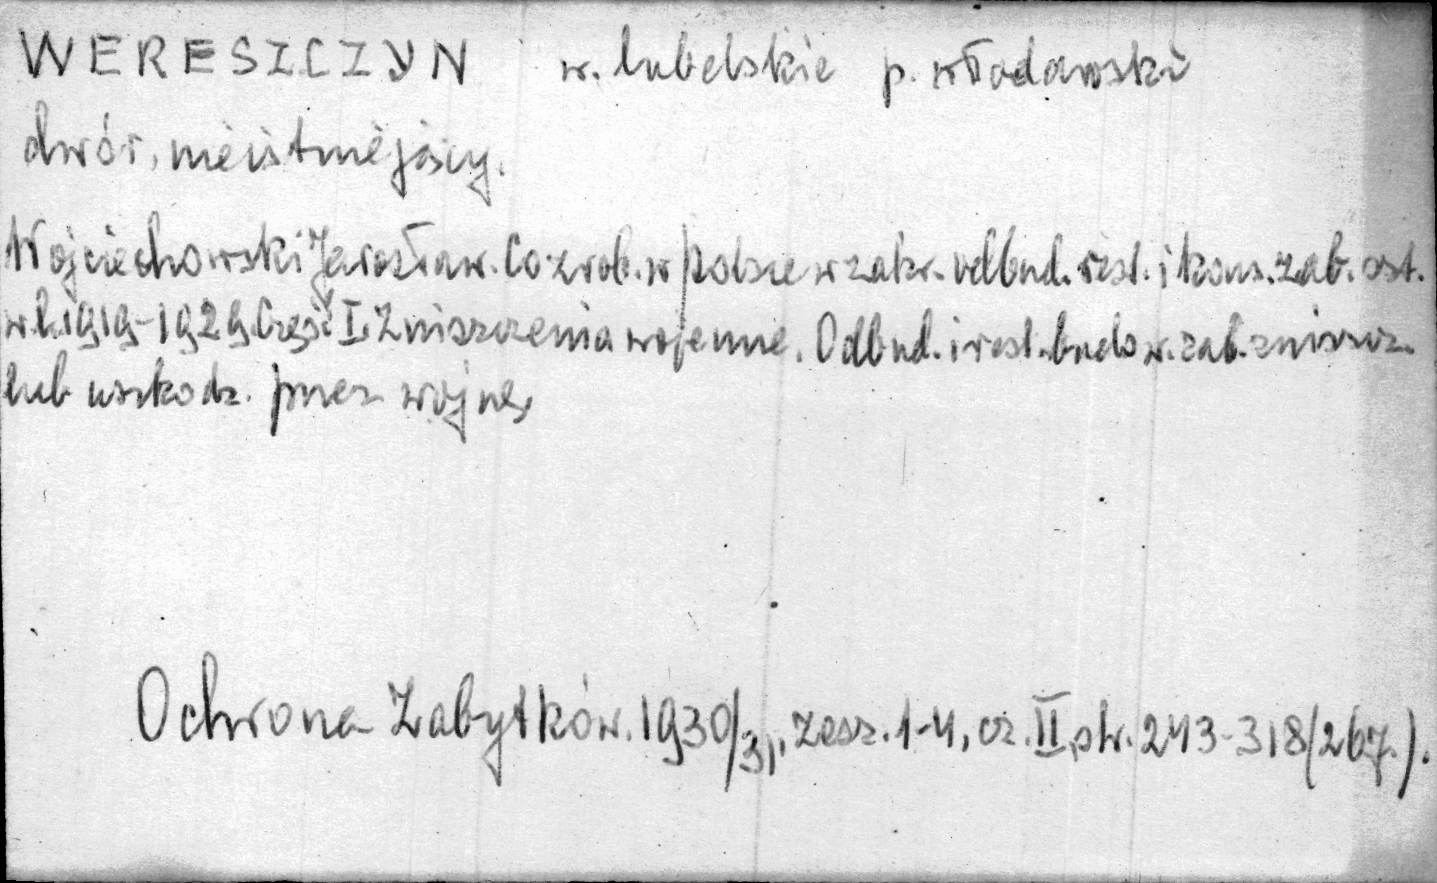 WERESZCZYN w. lubelskie p. włodawski
dwór, nieistniejący.
Wojciechowski Jarosław. Co zrob. w Polsce w zakr. odbud. rest. i kons. zab. ost.
w l. 1919-1929. Część I. Zniszczenia wojenne. Odbud. i rest. budow. zab. zniszcz.
lub uszkodz. przez wojnę,
Ochrona Zabytków. 1930/31, zesz. 1-4, cz. II, str. 243-318 (267.).